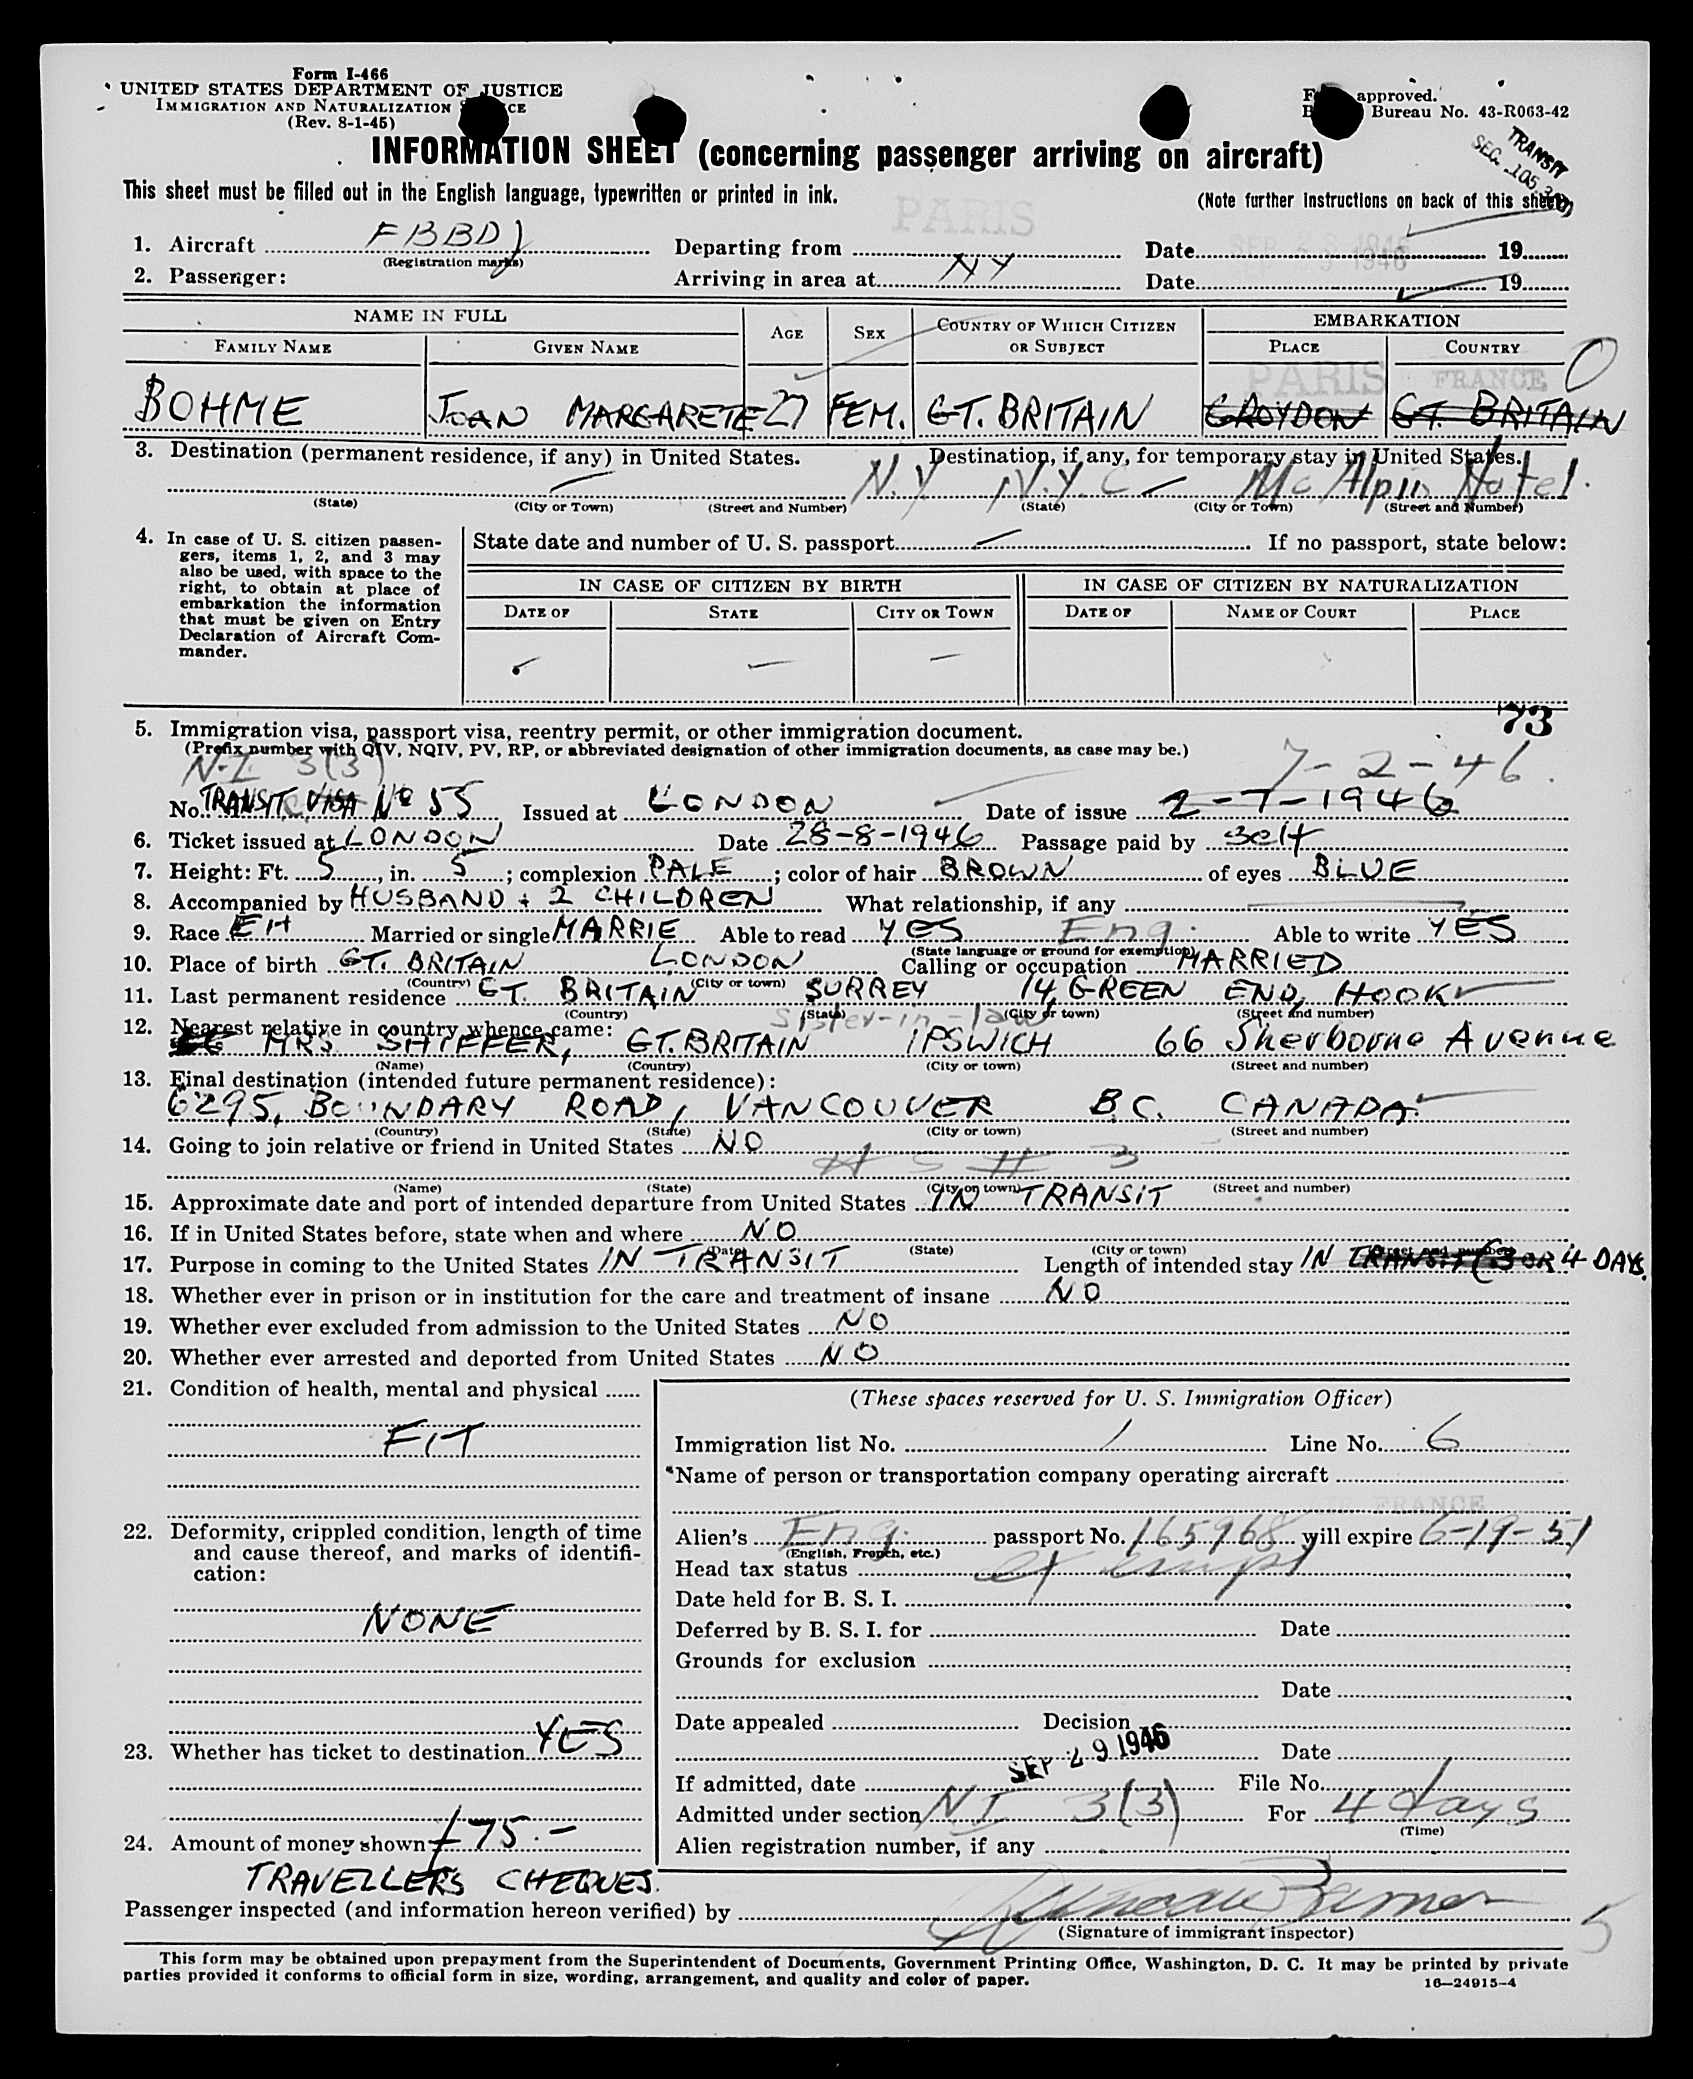 Form I-466
UNITED STATES DEPARTMENT OF JUSTICE
IMMIGRATION AND NATURALIZATION
(Rev. 8-1-45)
approved.
Bureau No. 43-R063-42
TRANSIT
SEC. 105.3
INFORMATION SHEET (concerning passenger arriving on aircraft)
This sheet must be filled out in the English language, typewritten or printed in ink.
(Note further instructions on back of this sheet)
PARIS
1. Aircraft FBBDJ Departing from Date SEP 28 1946 19
(Registration marks)
2. Passenger: Arriving in area at NY Date 1946 19
NAME IN FULL AGE SEX COUNTRY OF WHICH CITIZEN OR SUBJECT EMBARKATION
FAMILY NAME GIVEN NAME PLACE COUNTRY
PARIS FRANCE 0
BOHME JOAN MARGARETE 27 FEM. GT. BRITAIN CROYDON GT. BRITAIN
3. Destination (permanent residence, if any) in United States. Destination, if any, for temporary stay in United States.
N.Y. N.Y.C. McAlpin Hotel.
(State) (City or Town) (Street and Number) (State) (City or Town) (Street and Number)
4. In case of U. S. citizen passengers, items 1, 2, and 3 may also be used, with space to the right, to obtain at place of embarkation the information that must be given on Entry Declaration of Aircraft Commander.
State date and number of U. S. passport If no passport, state below:
IN CASE OF CITIZEN BY BIRTH IN CASE OF CITIZEN BY NATURALIZATION
DATE OF STATE CITY OR TOWN DATE OF NAME OF COURT PLACE
73
5. Immigration visa, passport visa, reentry permit, or other immigration document.
(Prefix number with QIV, NQIV, PV, RP, or abbreviated designation of other immigration documents, as case may be.)
N.I. 3(3) 7-2-46.
No. TRANSIT VISA No 55 Issued at LONDON Date of issue 2-7-1946
6. Ticket issued at LONDON Date 28-8-1946 Passage paid by self
7. Height: Ft. 5, in. 5; complexion PALE; color of hair BROWN of eyes BLUE
8. Accompanied by HUSBAND + 2 CHILDREN What relationship, if any
9. Race EH Married or single MARRIE Able to read YES Eng. Able to write YES
(State language or ground for exemption)
10. Place of birth GT. BRITAIN LONDON Calling or occupation MARRIED
(Country) (City or town)
11. Last permanent residence GT. BRITAIN SURREY 14, GREEN END, HOOK
(Country) (State) (City or town) (Street and number)
12. Nearest relative in country whence came: Sister-in-law
MRS. SHIFFER, GT. BRITAIN IPSWICH 66 Sherborne Avenue
(Name) (Country) (City or town) (Street and number)
13. Final destination (intended future permanent residence):
6295, BOUNDARY ROAD, VANCOUVER B.C. CANADA.
(Country) (State) (City or town) (Street and number)
14. Going to join relative or friend in United States NO
(Name) (State) (City or town) (Street and number)
15. Approximate date and port of intended departure from United States IN TRANSIT
16. If in United States before, state when and where NO
(Date) (State) (City or town) (Street and number)
17. Purpose in coming to the United States IN TRANSIT Length of intended stay IN TRANSIT (3 OR 4 DAYS.
18. Whether ever in prison or in institution for the care and treatment of insane NO
19. Whether ever excluded from admission to the United States NO
20. Whether ever arrested and deported from United States NO
21. Condition of health, mental and physical
FIT
22. Deformity, crippled condition, length of time and cause thereof, and marks of identification:
NONE
23. Whether has ticket to destination YES
24. Amount of money shown £75.-
TRAVELLERS CHEQUES.
(These spaces reserved for U. S. Immigration Officer)
Immigration list No. 1 Line No. 6
*Name of person or transportation company operating aircraft
FRANCE
Alien's Eng. passport No. 165968 will expire 6-19-51
(English, French, etc.)
Head tax status exempt
Date held for B. S. I.
Deferred by B. S. I. for Date
Grounds for exclusion
Date
Date appealed Decision
Date
SEP 29 1946
If admitted, date File No.
Admitted under section NI 3(3) For 4 days
(Time)
Alien registration number, if any
Passenger inspected (and information hereon verified) by
(Signature of immigrant inspector)
5
This form may be obtained upon prepayment from the Superintendent of Documents, Government Printing Office, Washington, D. C. It may be printed by private
parties provided it conforms to official form in size, wording, arrangement, and quality and color of paper.
16—24915-4